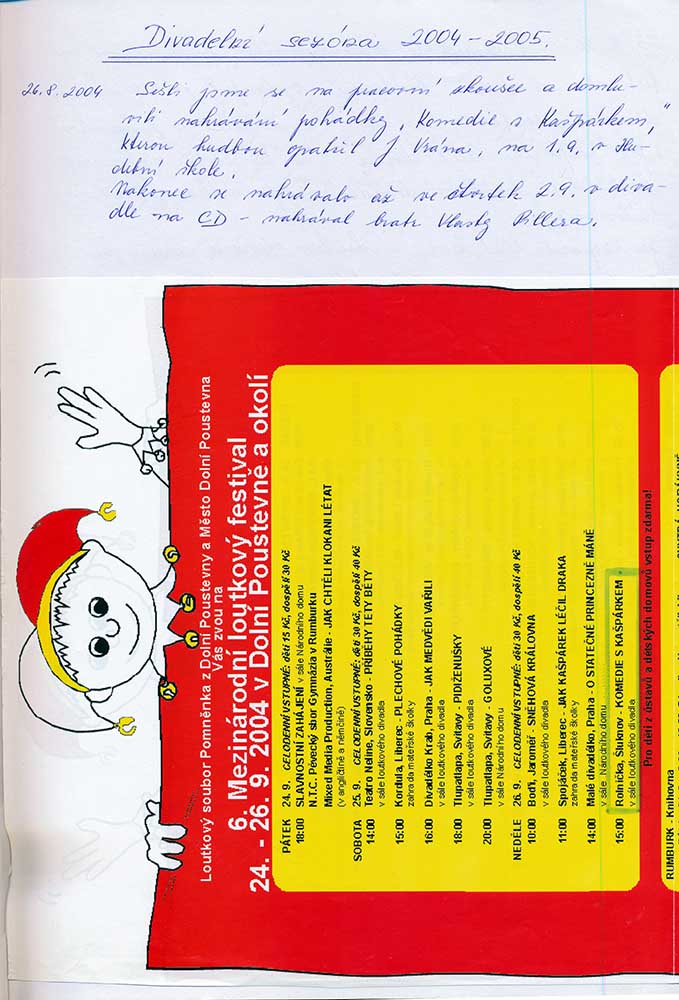 Divadelní sezóna 2004 - 2005.
26.8. 2004 Sešli jsme se na pracovní zkoušce a domlu-
vili nahrávání pohádky „Komedie s Kašpárkem,"
kterou hudbou opatřil J Vrána, na 1.9. v Hu-
dební škole.
Nakonec se nahrávalo až ve čtvrtek 2.9. v diva-
dle na CD - nahrával bratr Vlasty Pillera.
Loutkový soubor Pomněnka z Dolní Poustevny a Město Dolní Poustevna
Vás zvou na
6. Mezinárodní loutkový festival
24. - 26. 9. 2004 v Dolní Poustevně a okolí
PÁTEK 24. 9. CELODENNÍ VSTUPNÉ: děti 15 Kč, dospělí 30 Kč
18:00 SLAVNOSTNÍ ZAHÁJENÍ v sále Národního domu
N.T.C. Pěvecký sbor Gymnázia v Rumburku
Mixed Media Production, Austrálie - JAK CHTĚLI KLOKANI LÉTAT
(v angličtině a němčině)
SOBOTA 25. 9. CELODENNÍ VSTUPNÉ: děti 30 Kč, dospělí 40 Kč
14:00 Teatro Neline, Slovensko - PŘÍBEHY TETY BETY
v sále loutkového divadla
15:00 Kordula, Liberec - PLECHOVÉ POHÁDKY
zahrada mateřské školky
16:00 Divadélko Krab, Praha - JAK MEDVĚDI VAŘILI
v sále loutkového divadla
18:00 Tlupatlapa, Svitavy - PIDIŽENUŠKY
v sále loutkového divadla
20:00 Tlupatlapa, Svitavy - GOLUXOVÉ
v sále Národního domu
NEDĚLE 26. 9. CELODENNÍ VSTUPNÉ: děti 30 Kč, dospělí 40 Kč
10:00 Boďi, Jaroměř - SNĚHOVÁ KRÁLOVNA
v sále loutkového divadla
11:00 Spojáček, Liberec - JAK KAŠPÁREK LÉČIL DRAKA
zahrada mateřské školky
14:00 Malé divadélko, Praha - O STATEČNÉ PRINCEZNĚ MÁNĚ
v sále Národního domu
15:00 Rolnička, Šluknov - KOMEDIE S KAŠPÁRKEM
v sále loutkového divadla
Pro děti z ústavů a dětských domovů vstup zdarma!
RUMBURK - Knihovna